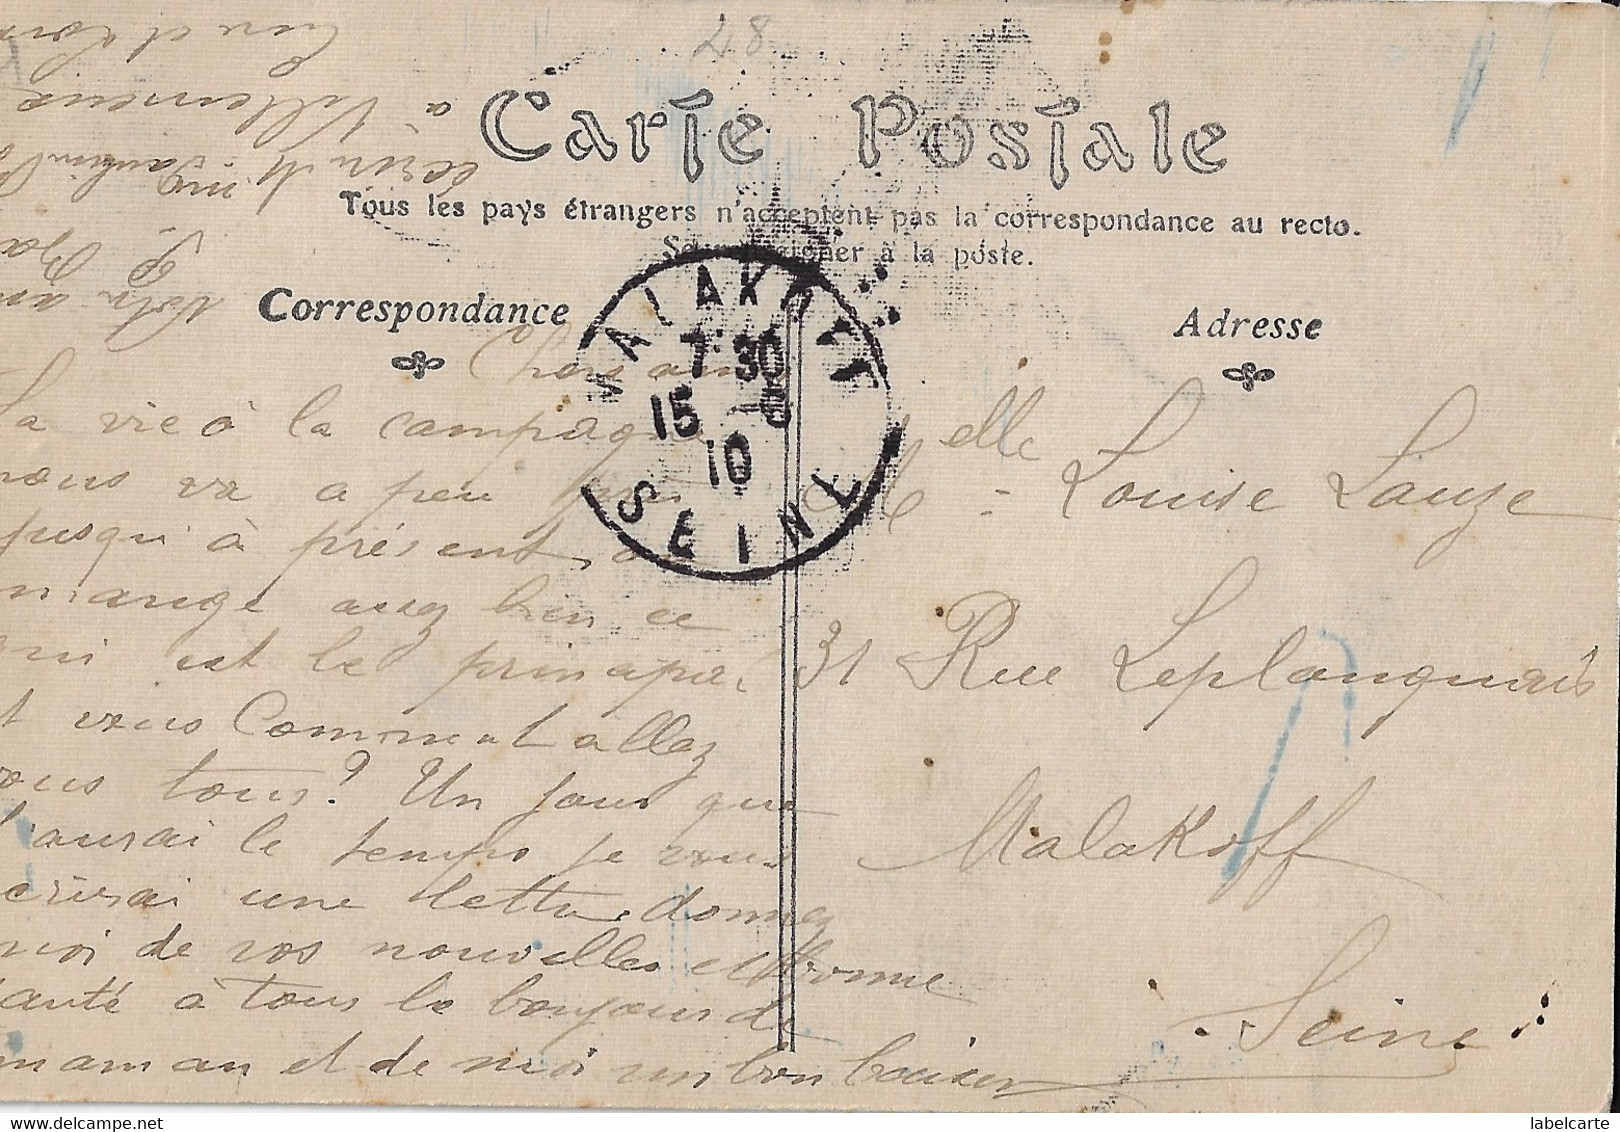 28
Carte Postale
Tous les pays étrangers n'acceptent pas la correspondance au recto.
Se renseigner à la poste.
Correspondance
Adresse
MALAKOFF
7:30
15 8
10
SEINE
Chers amis
La vie à la campagne
nous va a peu près
jusqu'à présent, on
mange assez bien ce
qui est le principal
et vous Comment allez
vous tous? Un jour que
j'aurai le temps je vous
écrirai une lettre, donnez
moi de vos nouvelles et bonne
santé à tous le bonjour de
maman et de moi un bon baiser
Melle Louise Lauze
31 Rue Leplanquais
Malakoff
Seine
Votre am
à Villemeux
labelcarte
delcampe.net